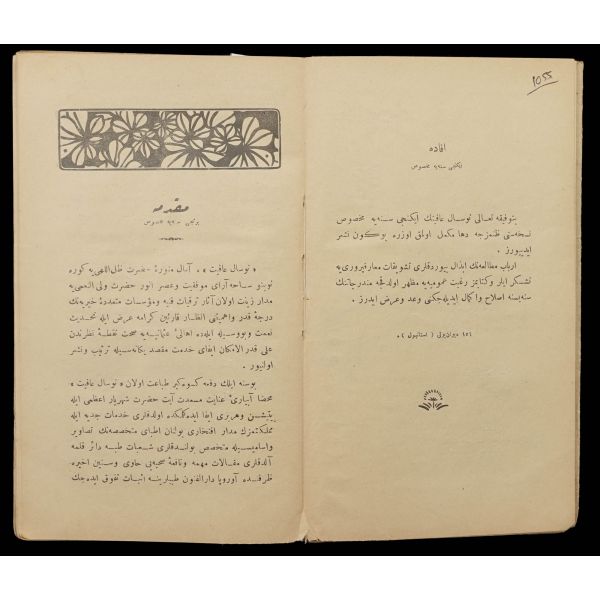 1055
افاده
ایكنجی سنه‌یه مخصوص
بتوفیقه تعالی نوسال عافیتك ایكنجی سنه‌یه مخصوص
نسخه‌سنی ظنمزجه دها مكمل اولمق اوزره بوكون نشر
ایدیيورز.
ارباب مطالعه‌نك ابذال بیوردقلری تشویقات معارفپروری‌یه
تشكر ایلر وكتابمز رغبت عمومیه‌یه مظهر اولدقجه مندرجاتنك
سنه‌بسنه اصلاح واكمال ایدیله‌جكنی وعد وعرض ایدرز.
( استانبول )
مقدمه
برنجی سنه‌یه مخصوص
« نوسال عافیت » ، آمال حضرت ظل اللهی‌یه كوره
ساحه آرای موفقیت وعصر انور حضرت ولی النعمی‌یه
مدار زینت اولان آثار ترقیات فنیه ومؤسسات متعددهٔ خیریه‌نك
درجهٔ قدر واهمیتنی انظار قارئین كرامه عرض ایله تحدیث
نعمت وبووسیله ایله‌ده اهالئ عثمانیه‌یه صحت نقطهٔ نظرندن
علی قدر الامكان ایفای خدمت مقصد یكانه‌سیله ترتیب ونشر
اولنیور.
بوسنه ایلك دفعه كسوه‌گیر طباعت اولان « نوسال عافیت »
محضا آبیاری عنایت حضرت شهریار اعظمی ایله
یتیشن وهربری ایفا ایده‌كلمكده اولدقلری خدمات جدیه ایله
مملكتمزك مدار افتخاری بولنان اطبای متخصصه‌نك تصاویر
واسامیسیله متخصص بولندقلری شعبات طبیه دائر قلمه
آلدقلری مقالات مهمه ونافعهٔ صحیه‌یی حاوی وسنین اخیره
ظرفنده آوروپا دارالفنون طبیلرینه اثبات تفوق ایده‌جك